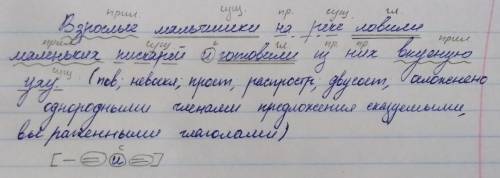 прил сущ. пр. сущ. гл.
Взрослые мальчишки на реке ловили
прил сущ с гл. пр. пр. прил
маленьких пискарей и готовили из них вкусную
сущ
уху (пов; невоскл; прост, распростр, двусост, осложнено
однородными членами предложения сказуемыми,
выраженными глаголами)
с
[- = и =]